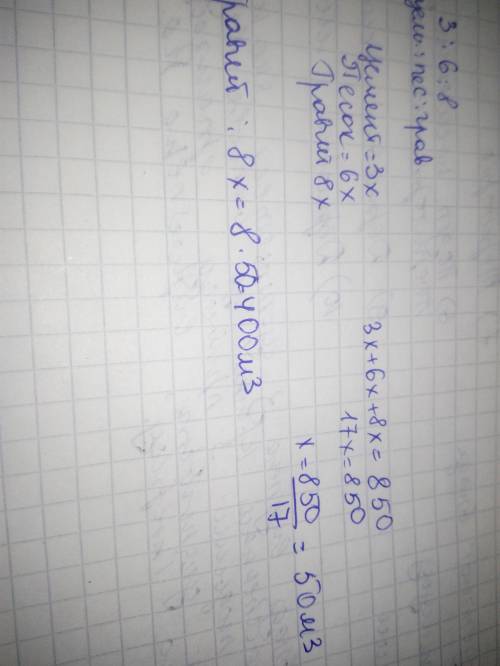 3 : 6 : 8
цем : пес : грав
Цемент = 3х
Песок = 6х
Гравий 8х
3х+6х+8х = 850
17х = 850
х = 850/17 = 50м3
равий : 8х = 8·50=400м3